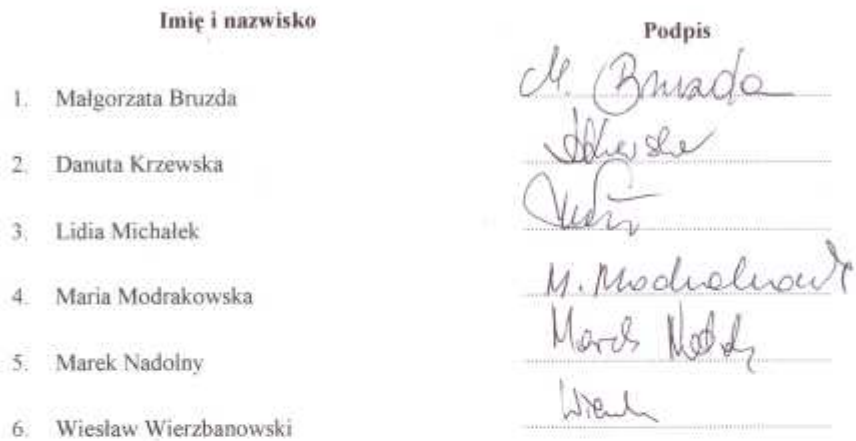 Imię i nazwisko Podpis
1. Małgorzata Bruzda M. Bruzda
2. Danuta Krzewska
3. Lidia Michałek
4. Maria Modrakowska M.
5. Marek Nadolny Marek
6. Wiesław Wierzbanowski